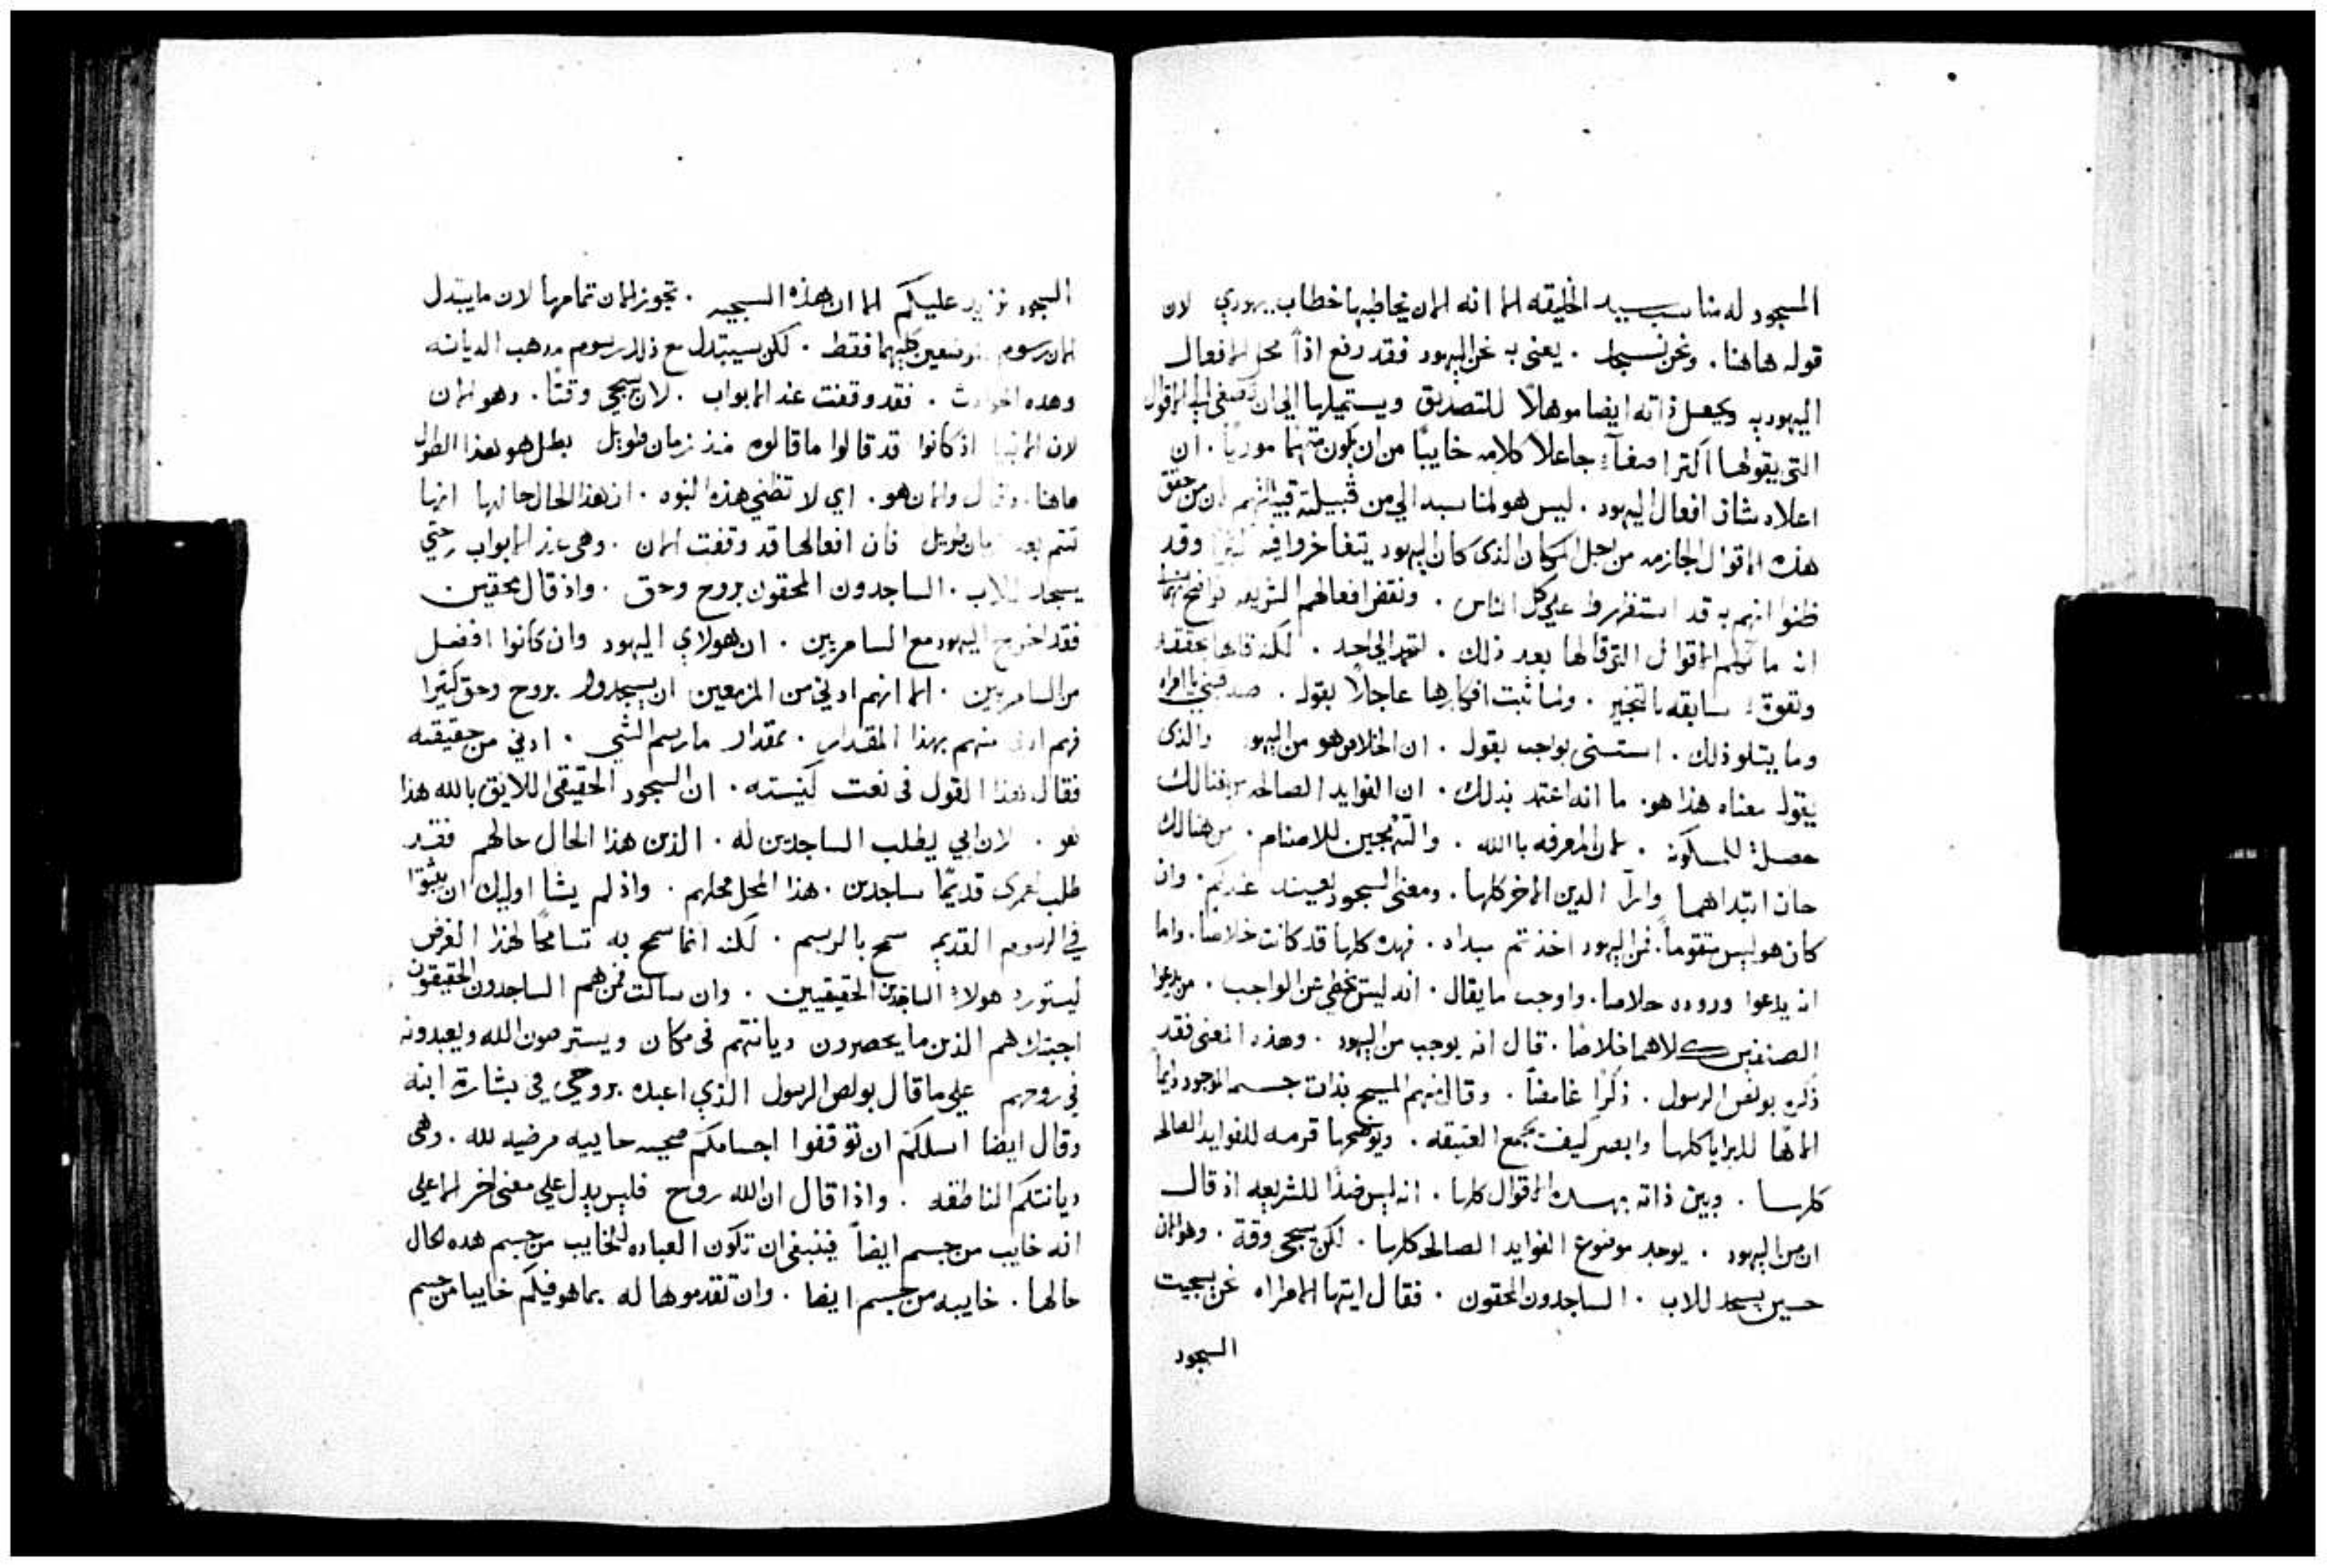 المسجود له مناسب سيد الخليقه الا انه الان يخاطبها خطاب يهودي لان
قوله هاهنا . ونحن نسجد . يعني به نحن اليهود فقد رفع اذاً محل الافعال
اليهوديه ويجعل ذاته ايضا موهلاً للتصديق ويستميلها الي ان تصغي الي الاقوال
التي يقولها اكثر اصغآءً جاعلاً كلامه خايبًا من ان يكون متهمًا . ان
اعلاه شان افعال اليهود . ليس هو لمناسبه الي من قبيلته لان من حقق
هذه الاقوال الجازمه من اجل المكان الذي كان اليهود يتفاخروا فيه وقد
ظنوا انهم به قد استظهروا علي كل الناس . ونقض افعالهم الشريفه
ان ما الاقوال التي قالها بعد ذلك . لكنه قالها بحققه
سابقه بالتخبير . وثبت افكارها عاجلاً بقوله . صدقيني يا امراه
وما يتلو ذلك . استثنى بواجب بقوله . ان الخلاص هو من اليهود والذي
يقوله معناه هذا هو . ما انه اعتد بذلك . ان الفوايد الصالحه من هنالك
حصلة للمسكونه . لان المعرفه بالله . والتهجين للاصنام . من هنالك
حان ابتداهما وارآ الدين الاخر كلها . ومعنى السجود بعينه عندكم . وان
كان هو ليس متقوماً . فمن اليهود اخذتم مبداه . فهذه كلها قد كانت خلاصا . واما
ان يدعوا وروده خلاصا . واوجب ما يقال . انه ليس يخطي عن الواجب . من يدعوا
الصنفين كلاهما خلاصا . قال انه يوجب من اليهود . وهذا المعنى فقد
ذكره بولص الرسول . ذكرًا غامضاً . وقال منهم المسيح بذات جسمه الموجود دايماً
الاهًا للبرايا كلها وابصر كيف يجمع العتيقه . ويوضحها قرمه للفوايد الصالحه
كلها . وبين ذاته بهذه الاقوال كلها . انه ليس ضدًا للشريعه اذ قال
ان من اليهود . يوجد موضوع الفوايد الصالحه كلها . لكن سيجي وقة . وهو الان
حين يسجد للاب . الساجدون المحقون . فقال ايتها الامراه نحن بسجيت
السجود
السجود نزيد عليكم الا ان هذه السجيه . تجوز الان تمامها لان ما يبتدل
الان رسوم موضعين كليهما فقط . لكن سيبتدل مع ذلك رسوم مذهب الديانه
وهذه الحوادث . فقد وقفت عند الابواب . لان سيجي وقتًا . وهو الان
لان الانبيا اذ كانوا قد قالوا ما قالوه منذ زمان طويل بطل هو هذا الطول
هاهنا . وقال والان هو . اي لا تظني هذه النبوه . ان هذا الحال حالها انها
تتم بعد زمان طويل فان افعالها قد وقفت الان . وهي عند الابواب حتي
يسجد للاب . الساجدون المحقون بروح وحق . واذ قال محقين
فقد اخرج اليهود مع السامريين . ان هولاي اليهود وان كانوا افضل
من السامريين . الا انهم ادني من المزمعين ان يسجدوا بروح وحق كثيرا
فهم ادنى منهم بهذا المقدار . بمقدار ما رسم الشي . ادني من حقيقته
فقال هذا القول في نعت كنيسته . ان السجود الحقيقي اللايق بالله هذا
هو . لان ابي يطلب الساجدين له . الذين هذا الحال حالهم فقد
طلب لعمري قديمًا ساجدين . هذا المحل محلهم . واذ لم يشا اوليك ان يثبتوا
في الرسوم القديم سمح بالرسم . لكنه انما سمح به تسامحًا لهذا الغرض
ليستورد هولاء الساجدين الحقيقيين . وان سالت فمن هم الساجدون الحقيقون
اجبتك هم الذين ما يحصرون ديانتهم في مكان ويسترضون الله ويعبدونه
في روحهم علي ما قال بولص الرسول الذي اعبده بروحي في بشارة ابنه
وقال ايضا اسلكم ان توقفوا اجسامكم ضحيه حاييه مرضيه لله . وهي
ديانتكم الناطقه . واذا قال ان الله روح فليس يدل علي معني اخر الا علي
انه خايب من جسم ايضاً فينبغي ان تكون العباده للخايب من جسم هذه الحال
حالها . خايبه من جسم ايضا . وان تقدموها له بما هو فيكم خايبا من جسم